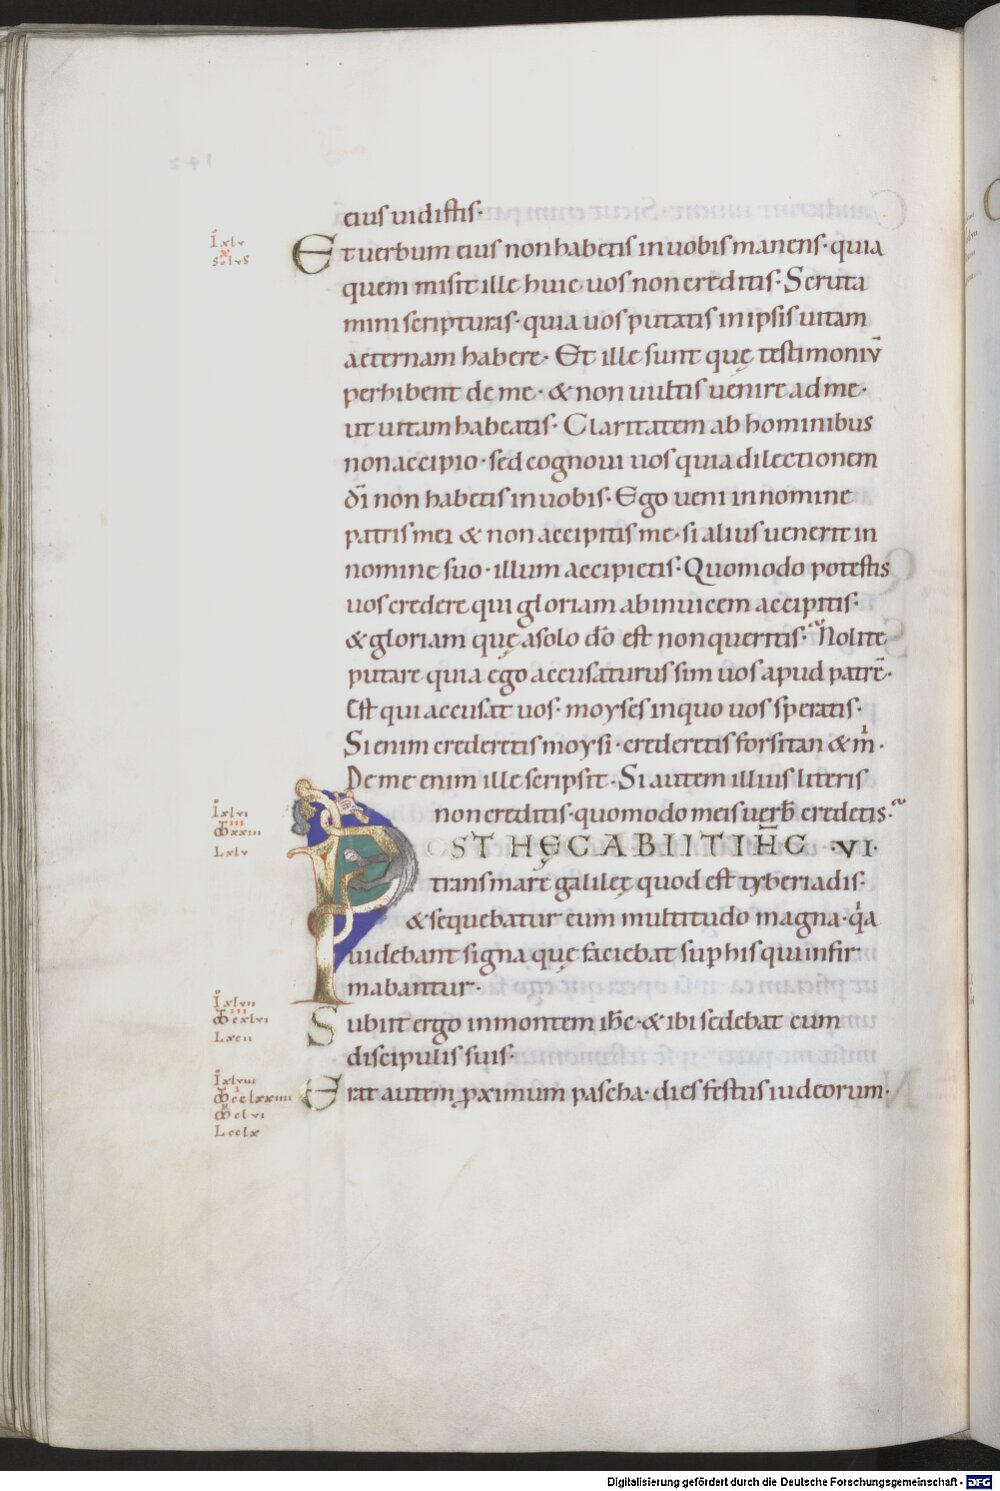 eius uidistis·
Et uerbum eius non habetis in uobis manens· quia
quem misit ille huic uos non creditis· Scruta
mini scripturas· quia uos putatis in ipsis uitam
aeternam habere· Et ille sunt quę testimoniū
perhibent de me· & non uultis uenire ad me·
ut uitam habeatis· Claritatem ab hominibus
non accipio· sed cognoui uos quia dilectionem
dī non habetis in uobis· Ego ueni in nomine
patris mei & non accipitis me· si alius uenerit in
nomine suo· illum accipietis· Quomodo potestis
uos credere qui gloriam ab inuicem accipitis·
& gloriam quę a solo dō est non queritis· Nolite
putare quia ego accusaturus sim uos apud patrē·
Est qui accusat uos· moyses in quo uos speratis·
Si enim crederetis moysi· crederetis forsitan & m̍·
De me enim ille scripsit· Si autem illius literis
non creditis· quomodo meis uerb̄ credetis·
POST HĘC ABIIT IH̄C ·VI·
trans mare galileę quod est tyberiadis·
& sequebatur eum multitudo magna· q̍a
uidebant signa quę faciebat sup̄ his qui infir
mabantur·
Subiit ergo in montem ih̄c· & ibi sedebat cum
discipulis suis·
Erat autem ꝓximum pascha· dies festus iudeorum·
I xlv
I xlvi
L xlv
I xlvii
L xcii
I xlviii
L cclx
Digitalisierung gefördert durch die Deutsche Forschungsgemeinschaft - DFG